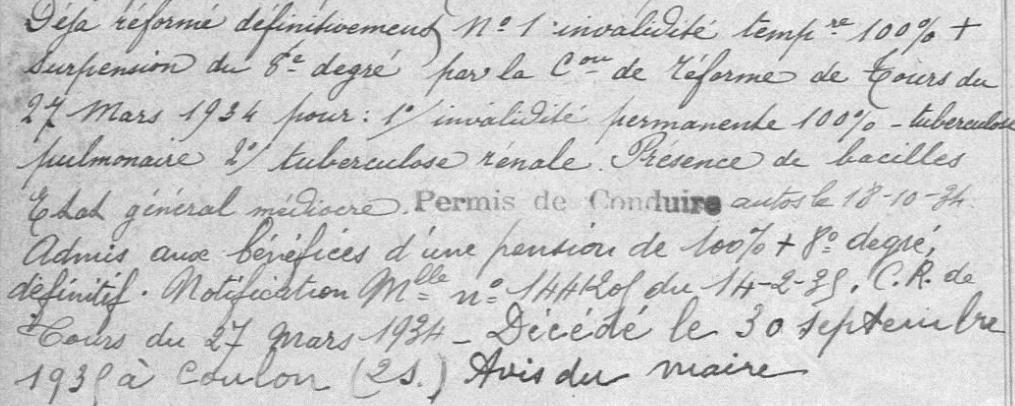 Déja réformé définitivement N° 1 invalidité temp^re 100% +
surpension du 8e degré par la C^on de réforme de Tours du
27 Mars 1934 pour : 1°/ invalidité permanente 100% - tuberculose
pulmonaire 2°/ tuberculose rénale. Présence de bacilles
Etat général médiocre. Permis de Conduire autos le 18-10-34.
Admis aux bénéfices d'une pension de 100% + 8° degré,
définitif. Notification M^lle n° 144205 du 14-2-35. C.R. de
Tours du 27 Mars 1934 _ Décédé le 30 septembre
1935 à Coulon (2s.) Avis du maire